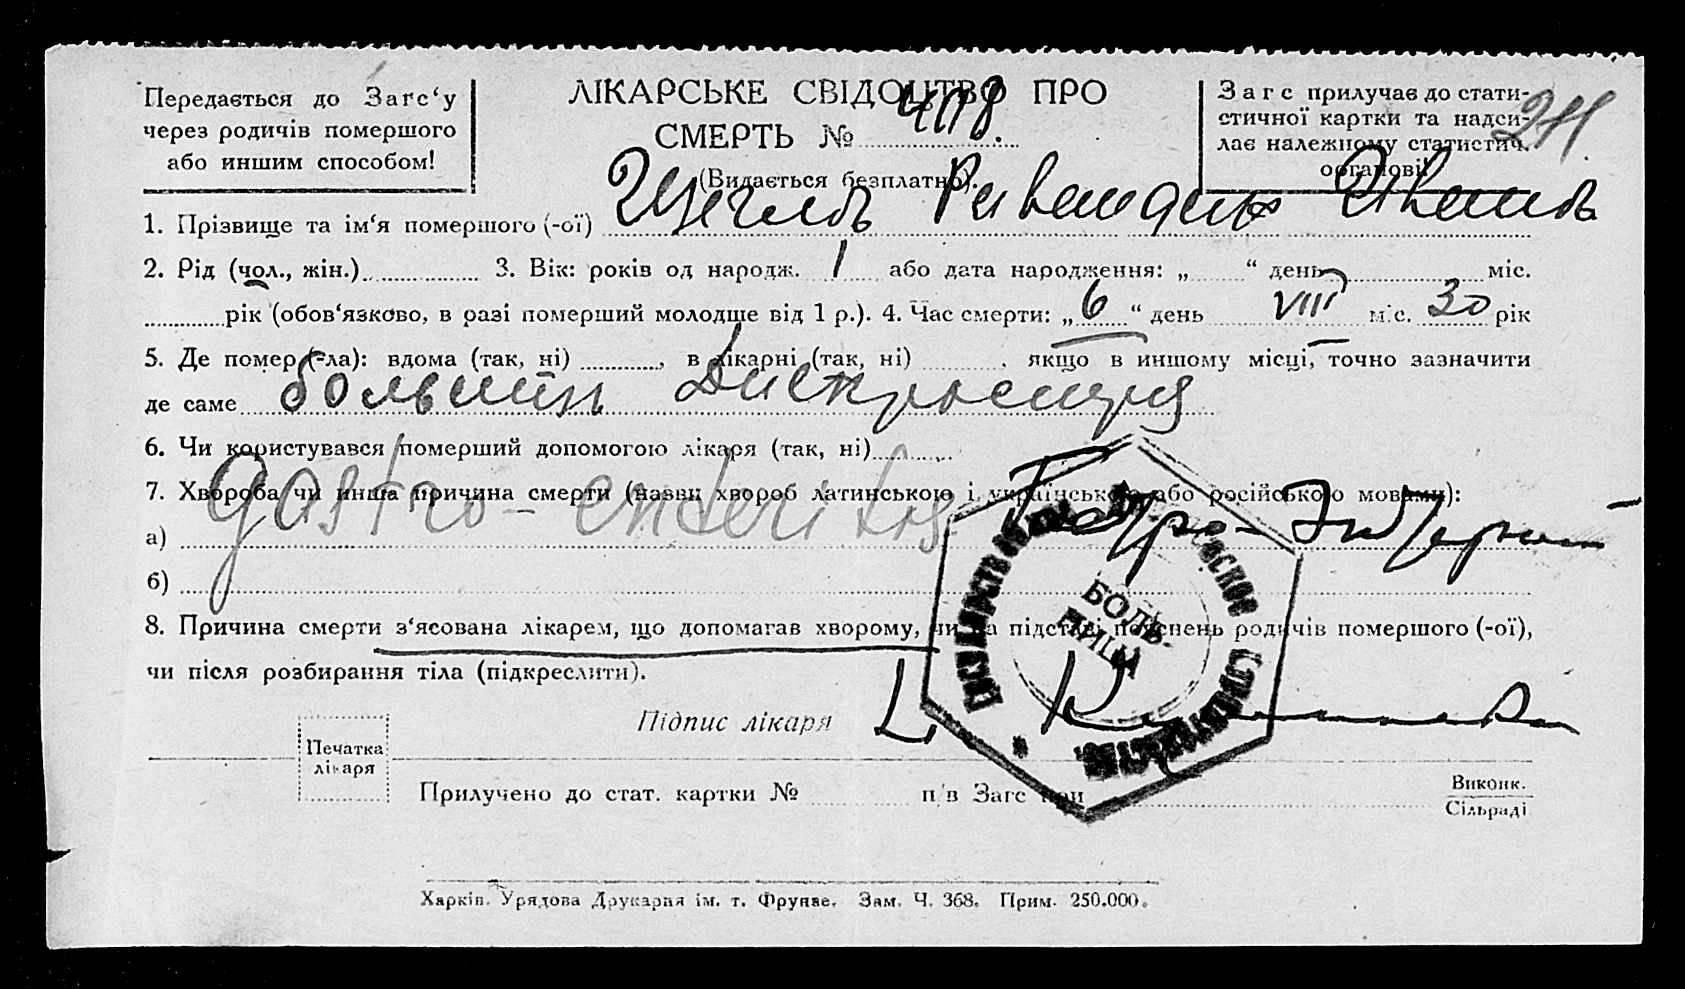 Передається до Заґс‘у
через родичів помершого
або иншим способом!
ЛІКАРСЬКЕ СВІДОЦТВО ПРО
СМЕРТЬ №
(Видається безплатно).
Загс прилучає до стати-
стичної картки та надси-
лає належному статистич.
органові
211
1. Прізвище та ім‘я помершого (-ої)
2. Рід (чол., жін.) 3. Вік: років од народж. 1 або дата народження: „ “ день міс.
рік (обов‘язково, в разі померший молодше від 1 р.). 4. Час смерти: „ 6 “ день VIII міс. 30 рік
5. Де помер (-ла): вдома (так, ні) , в лікарні (так, ні) , якщо в иншому місці, точно зазначити
де саме
6. Чи користувався померший допомогою лікаря (так, ні)
7. Хвороба чи инша причина смерти (назви хвороб латинською і українською або російською мовами):
а) Gastro-enteritis Гастро-Энтерит
б)
8. Причина смерти з‘ясована лікарем, що допомагав хворому, чи на підставі пояснень родичів помершого (-ої),
чи після розбирання тіла (підкреслити).
БОЛЬ-
НИЦА
Підпис лікаря
Печатка
лікаря
Прилучено до стат. картки № п/в Загс при
Виконк.
Сільраді
Харків. Урядова Друкарня ім. т. Фрунзе. Зам. Ч. 368. Прим. 250.000.